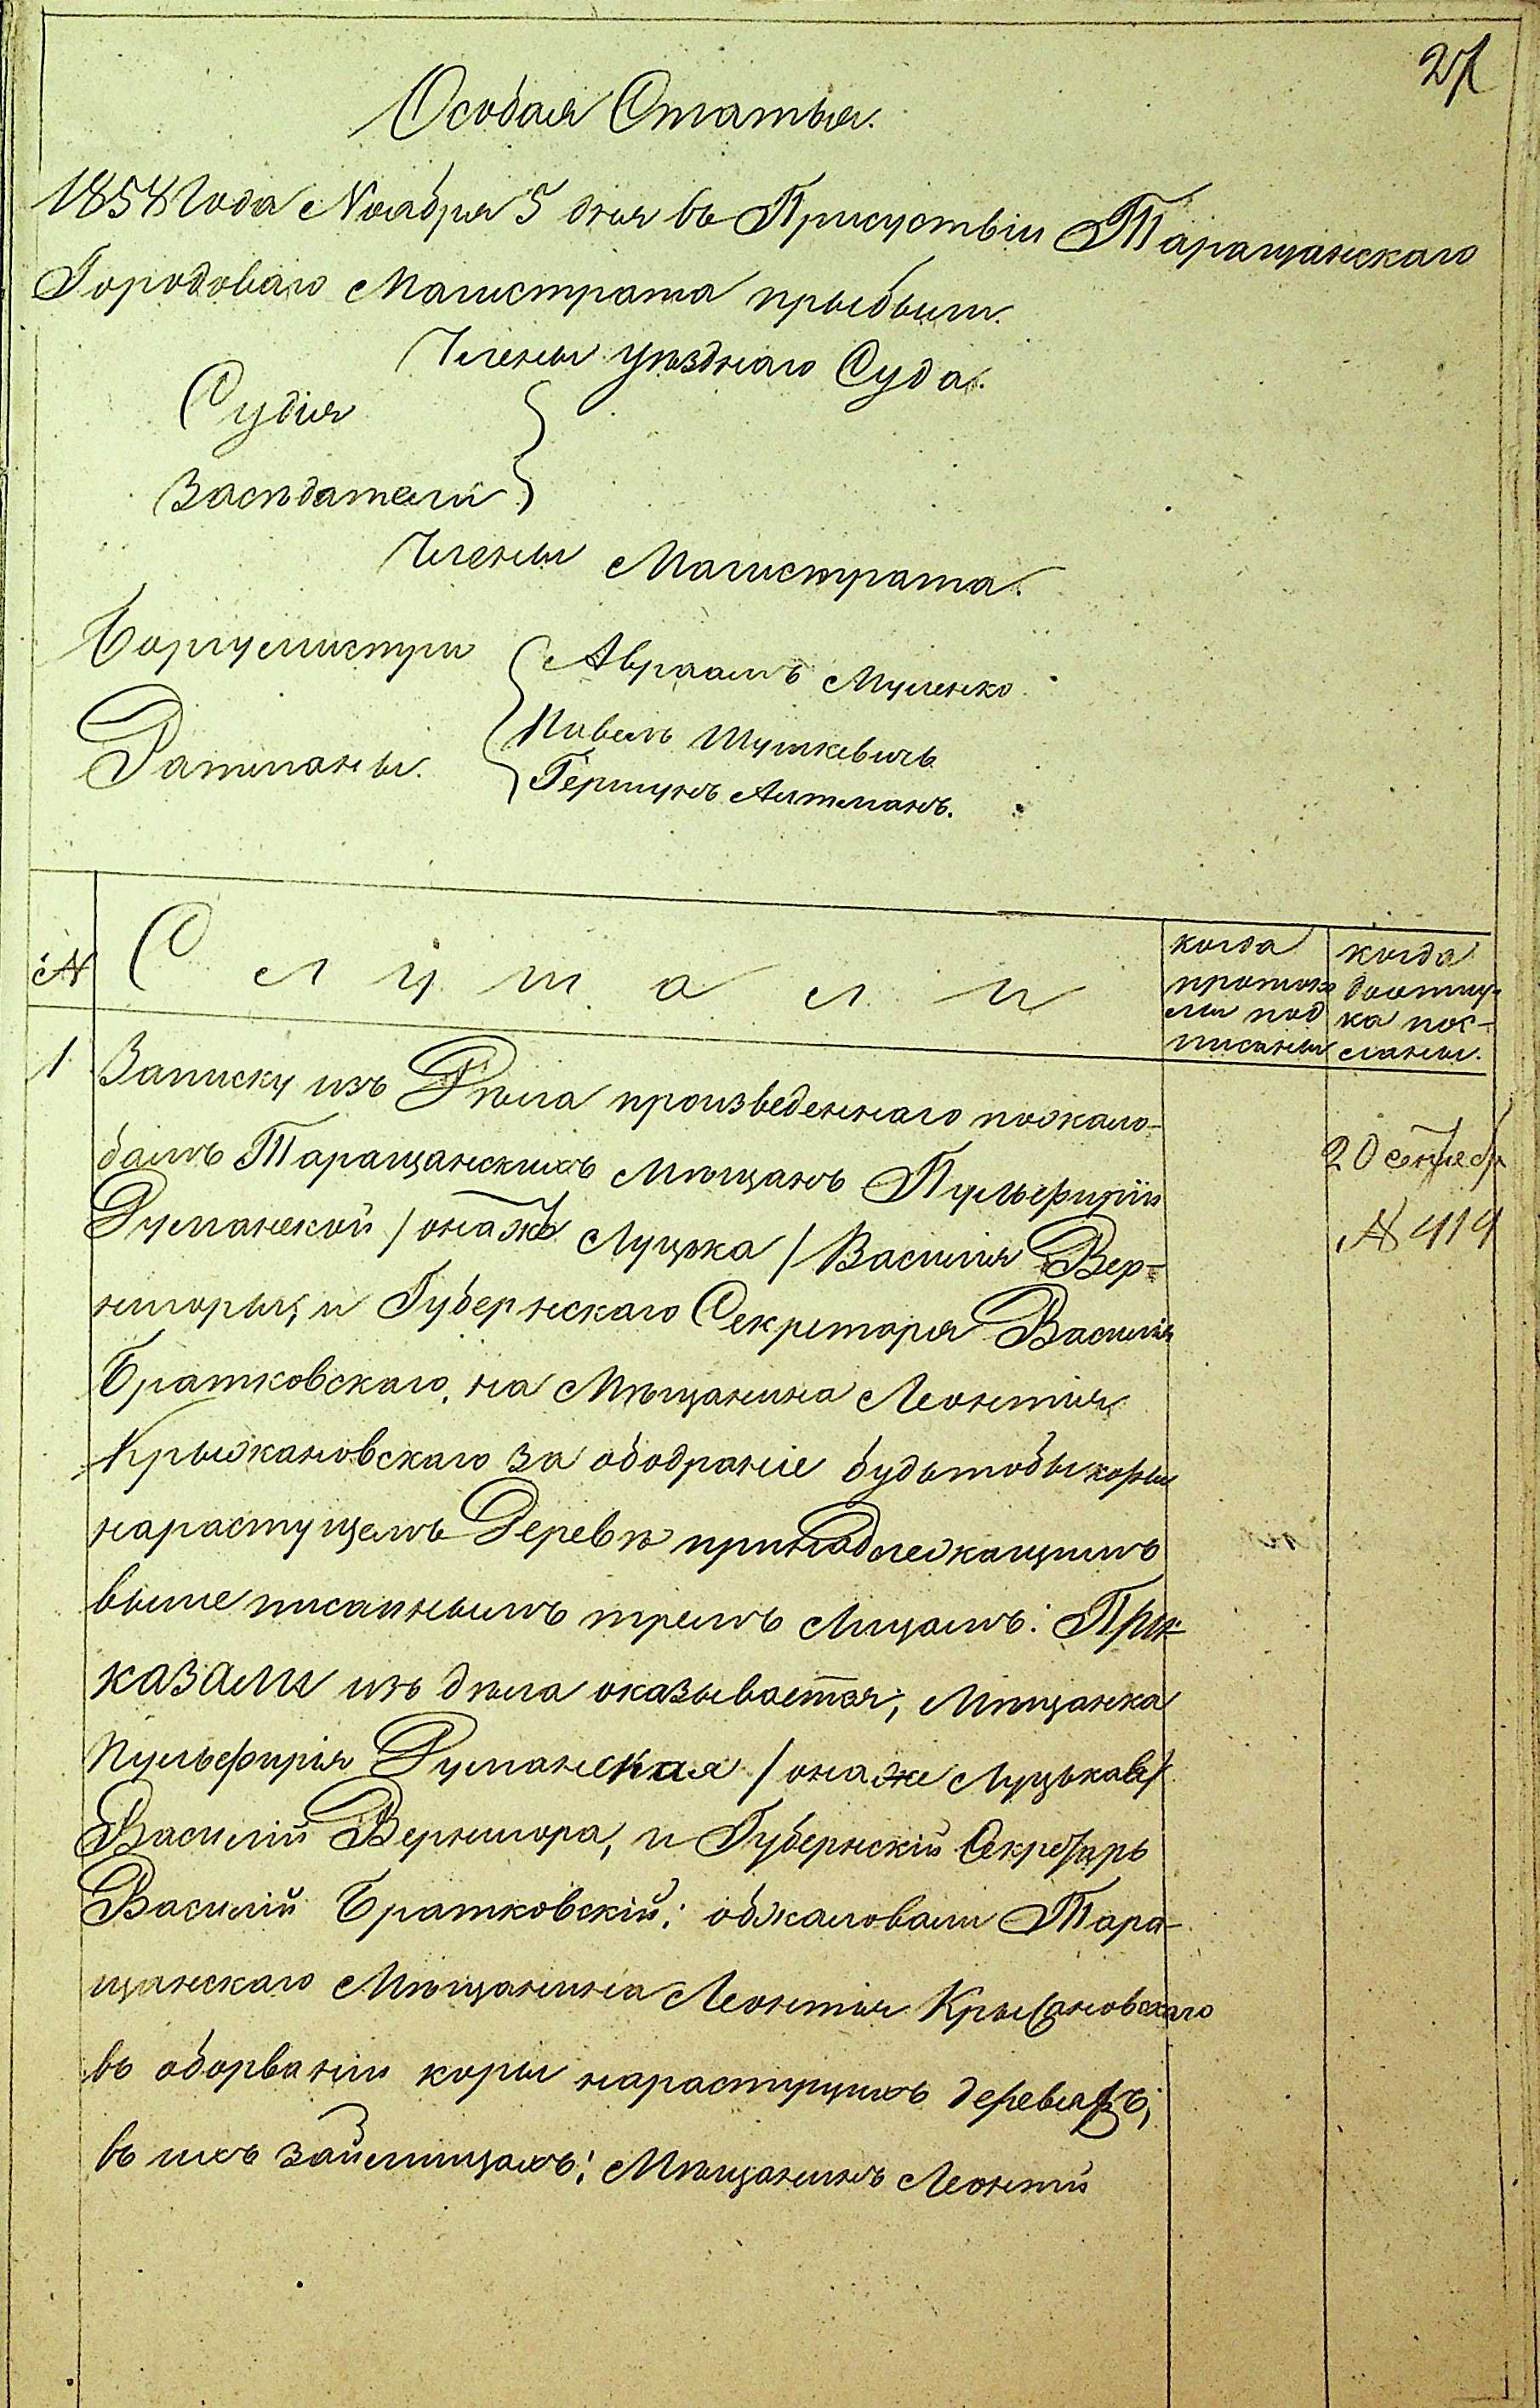 27
Особая Статья.
1858 Года Ноября 5 дня въ Присуствіи Таращанскаго
Городоваго Магистрата прыбыли.
Члены уѣзднаго Суда.
Судія
Засѣдатели
Члены Магистрата.
Боргумистри
Авраамъ Муленко
Павелъ Шушкевичь
Ратманы.
Гершунъ Алтманъ.
№
Слушали
когда
прото
лы под
писаны
когда
ка пос-
ланы.
1
Записку изъ Дѣла произведеннаго пожало-
бамъ Таращанскихъ Мѣщанъ Пульфиріи
Руманской / онажъ Луцька / Василія Вер-
нигоры, и Губернскаго Секритаря Василія
Братковскаго, на Мѣщанина Леонтія
Крыжановскаго за ободраніе будьтобы коры
нарастущемъ Деревѣ принадлежащимъ
выше писаннымъ тремъ Лицамъ: При-
казали изъ дѣла оказывается; Мѣщанка
Пульфирія Руманская / онаже Луцькава /
Василій Вернигора, и Губернскій Секретарь
Василій Братковскій: обжаловали Тара-
щанскаго Мѣщанина Леонтія Крыжановскаго
въ оборваніи коры нарастущихъ деревьяхъ;
въ ихъ займищахъ: Мѣщанинъ Леонтій
20
№ 414